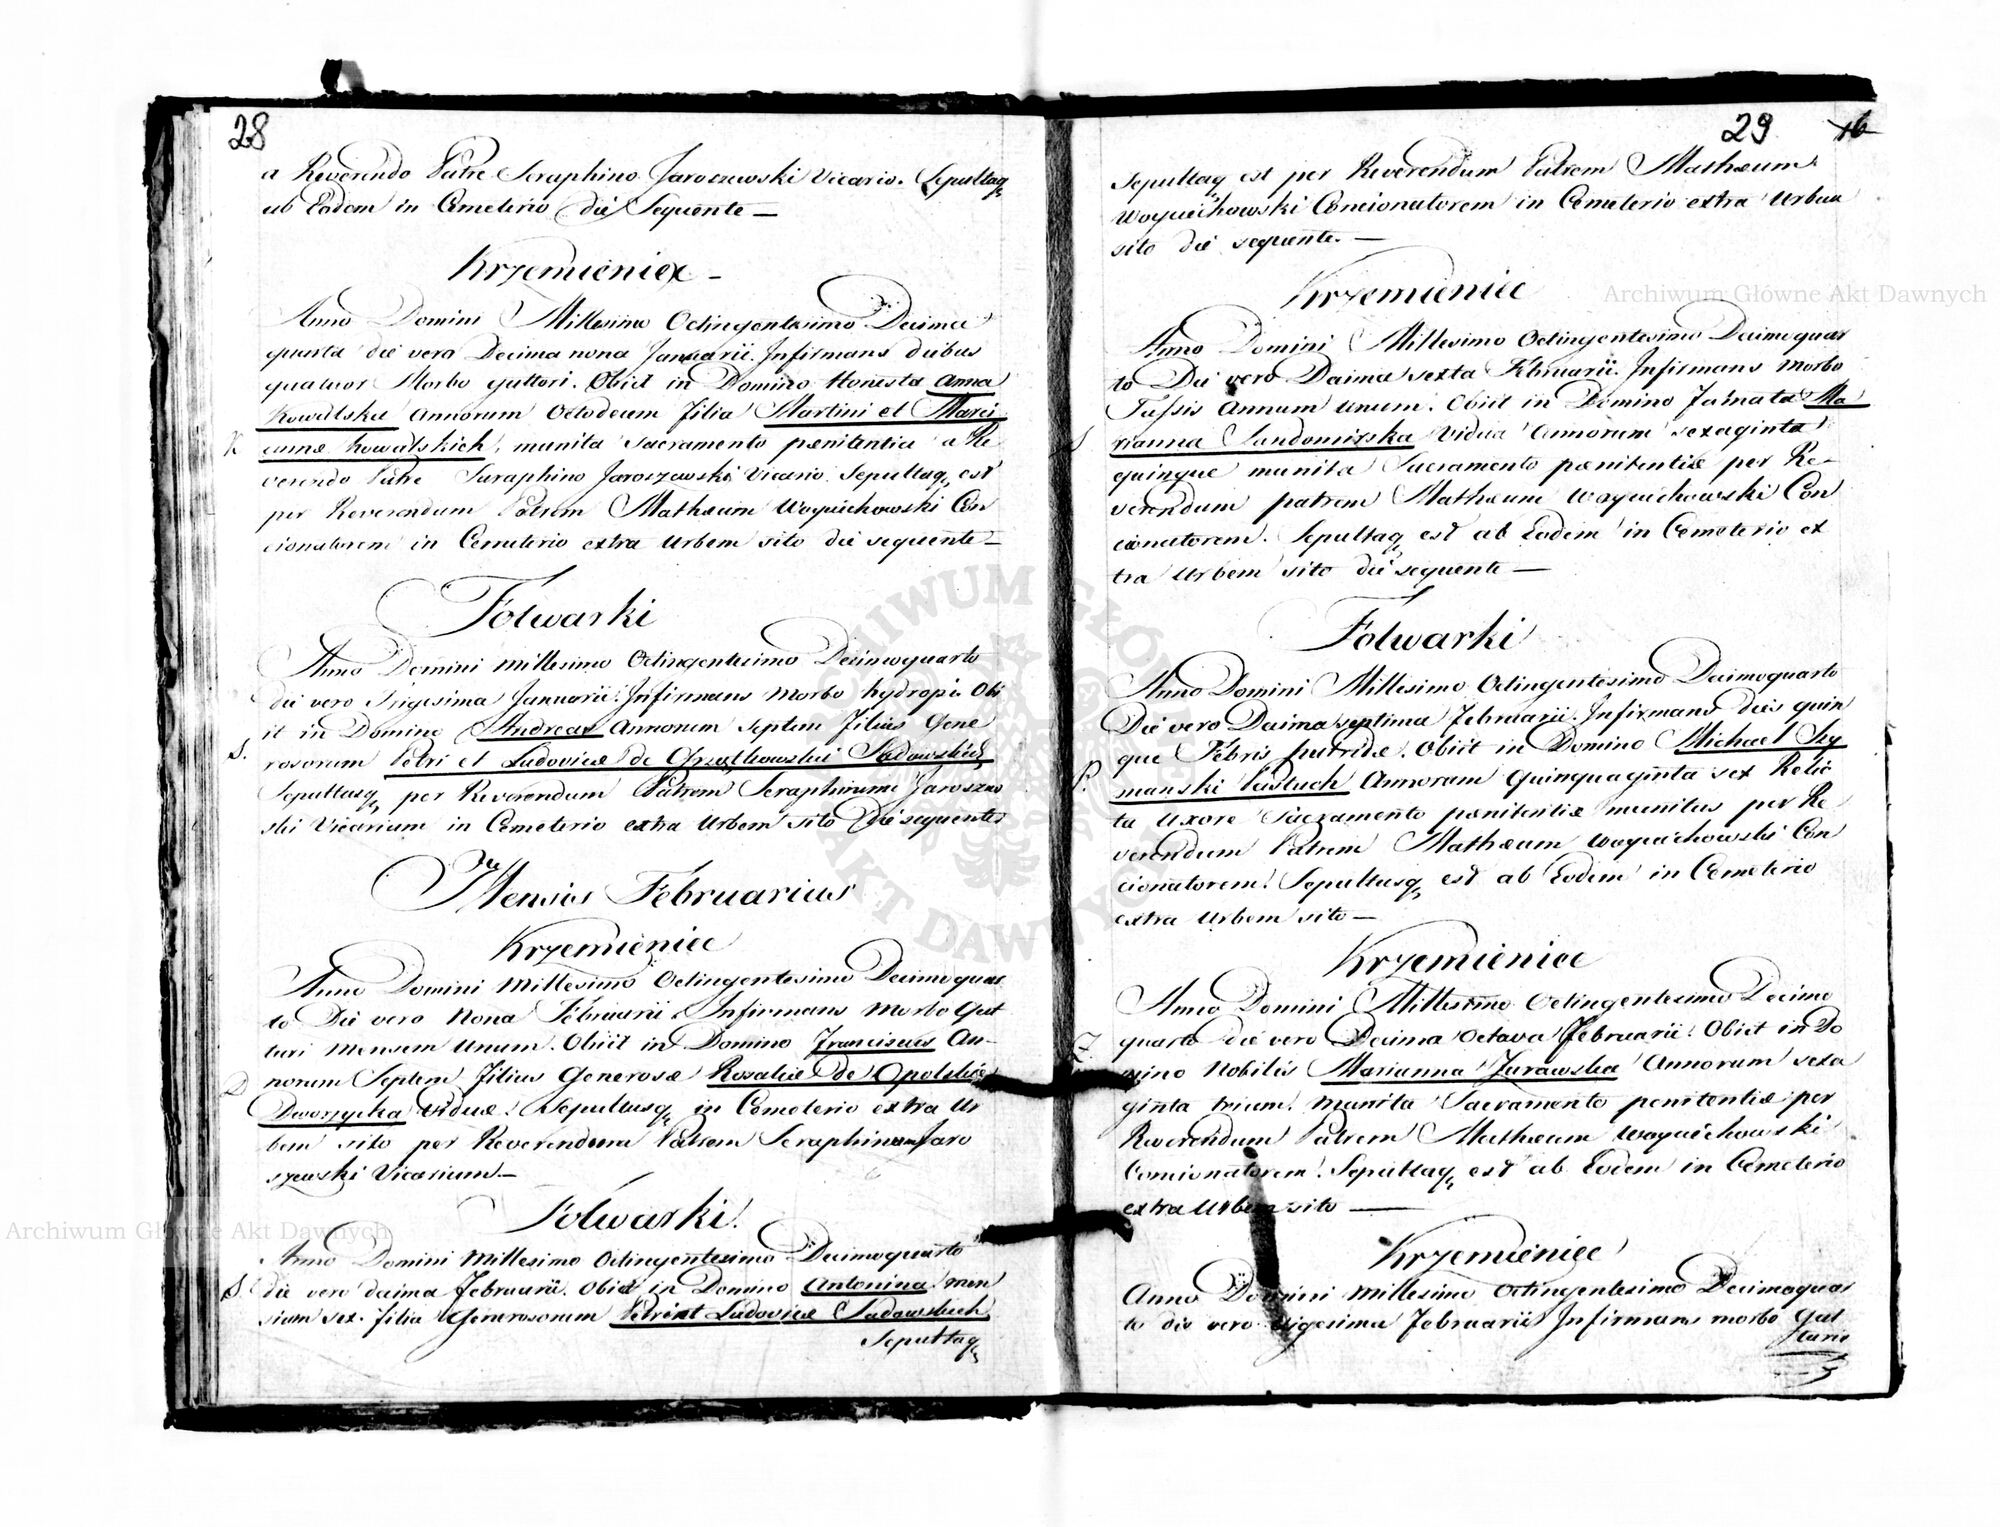 28
a Reverendo Patre Seraphino Jaroszewski Vicario. Sepultaq
ab Eodem in Cemeterio die Sequente —
Krzemieniec —
Anno Domini Millesimo Octingentesimo Decimo
quarto die vero Decima nona Januarii. Infirmans diebus
quatuor Morbo gutturi. Obiit in Domino Honesta Anna
Kowalska Annorum Octodecim filia Martini et Mari
K annæ Kowalskich, munita Sacramento pœnitentiæ a Re
verendo Patre Seraphino Jaroszewski Vicario. Sepultaq est
per Reverendum Patrem Mathæum Woyciechowski Con
cionatorem in Cemeterio extra Urbem sito die sequente —
Folwarki
Anno Domini Millesimo Octingentesimo Decimoquarto
die vero Trigesima Januarii. Infirmans Morbo hydropis Obi
it in Domino Andreas Annorum Septem Filius Gene
S. rosorum Petri et Ludovicæ de Sadowskich
Sepultusq per Reverendum Patrem Seraphinum Jaroszew
ski Vicarium in Cemeterio extra Urbem sito die sequente
Mensis Februarius
Krzemieniec
Anno Domini Millesimo Octingentesimo Decimoquar
to Die vero Nona Februarii. Infirmans Morbo Gut
turi Mensem Unum. Obiit in Domino Franciscus An-
norum Septem Filius Generosæ Rozaliæ de Opolskie
D Dworzycka Viduæ. Sepultusq in Cemeterio extra Ur
bem sito per Reverendum Patrem Seraphinum Jaro
szewski Vicarium —
Folwarki.
Anno Domini Millesimo Octingentesimo Decimoquarto
S. die vero decima Februarii. Obiit in Domino Antonina men
sium sex. filia Generosorum Petri et Ludovicæ Sadowskich
Sepultaq
29 16
Sepultaq est per Reverendum Patrem Mathæum
Woyciechowski Concionatorem in Cemeterio extra Urbem
sito die sequente. —
Krzemieniec
Anno Domini Millesimo Octingentesimo Decimoquar
to Die vero Decima sexta Februarii. Infirmans Morbo
Tussis Annum Unum. Obiit in Domino Ma
S rianna Sandomirska Vidua Annorum sexaginta
quinque munita Sacramento pœnitentiæ per Re-
verendum patrem Mathæum Woyciechowski Con
cionatorem. Sepultaq est ab Eodem in Cemeterio ex
tra Urbem sito die sequente —
Folwarki
Anno Domini Millesimo Octingentesimo Decimoquarto
Die vero Decima septima Februarii. Infirmans dies quin
que Febris putridæ. Obiit in Domino Michael Szy
P. manski Pastuch Annorum quinquaginta sex Relic
ta Uxore Sacramento pœnitentiæ munitus per Re
verendum Patrem Mathæum Woyciechowski Con
cionatorem. Sepultusq est ab Eodem in Cemeterio
extra Urbem sito —
Krzemieniec
Anno Domini Millesimo Octingentesimo Decimo
quarto die vero Decima Octava Februarii. Obiit in Do
Z. mino Nobilis Marianna Zurawska Annorum sexa
ginta trium. Munita Sacramento penitentiæ per
Reverendum Patrem Mathæum Woyciechowski
Concionatorem. Sepultaq est ab Eodem in Cemeterio
extra Urbem sito —
Krzemieniec
Anno Domini Millesimo Octingentesimo Decimoquar
to die vero vigesima Februarii Infirmans morbo Gut
turis
Archiwum Główne Akt Dawnych
Archiwum Główne Akt Dawnych
ARCHIWUM GŁÓWNE AKT DAWNYCH